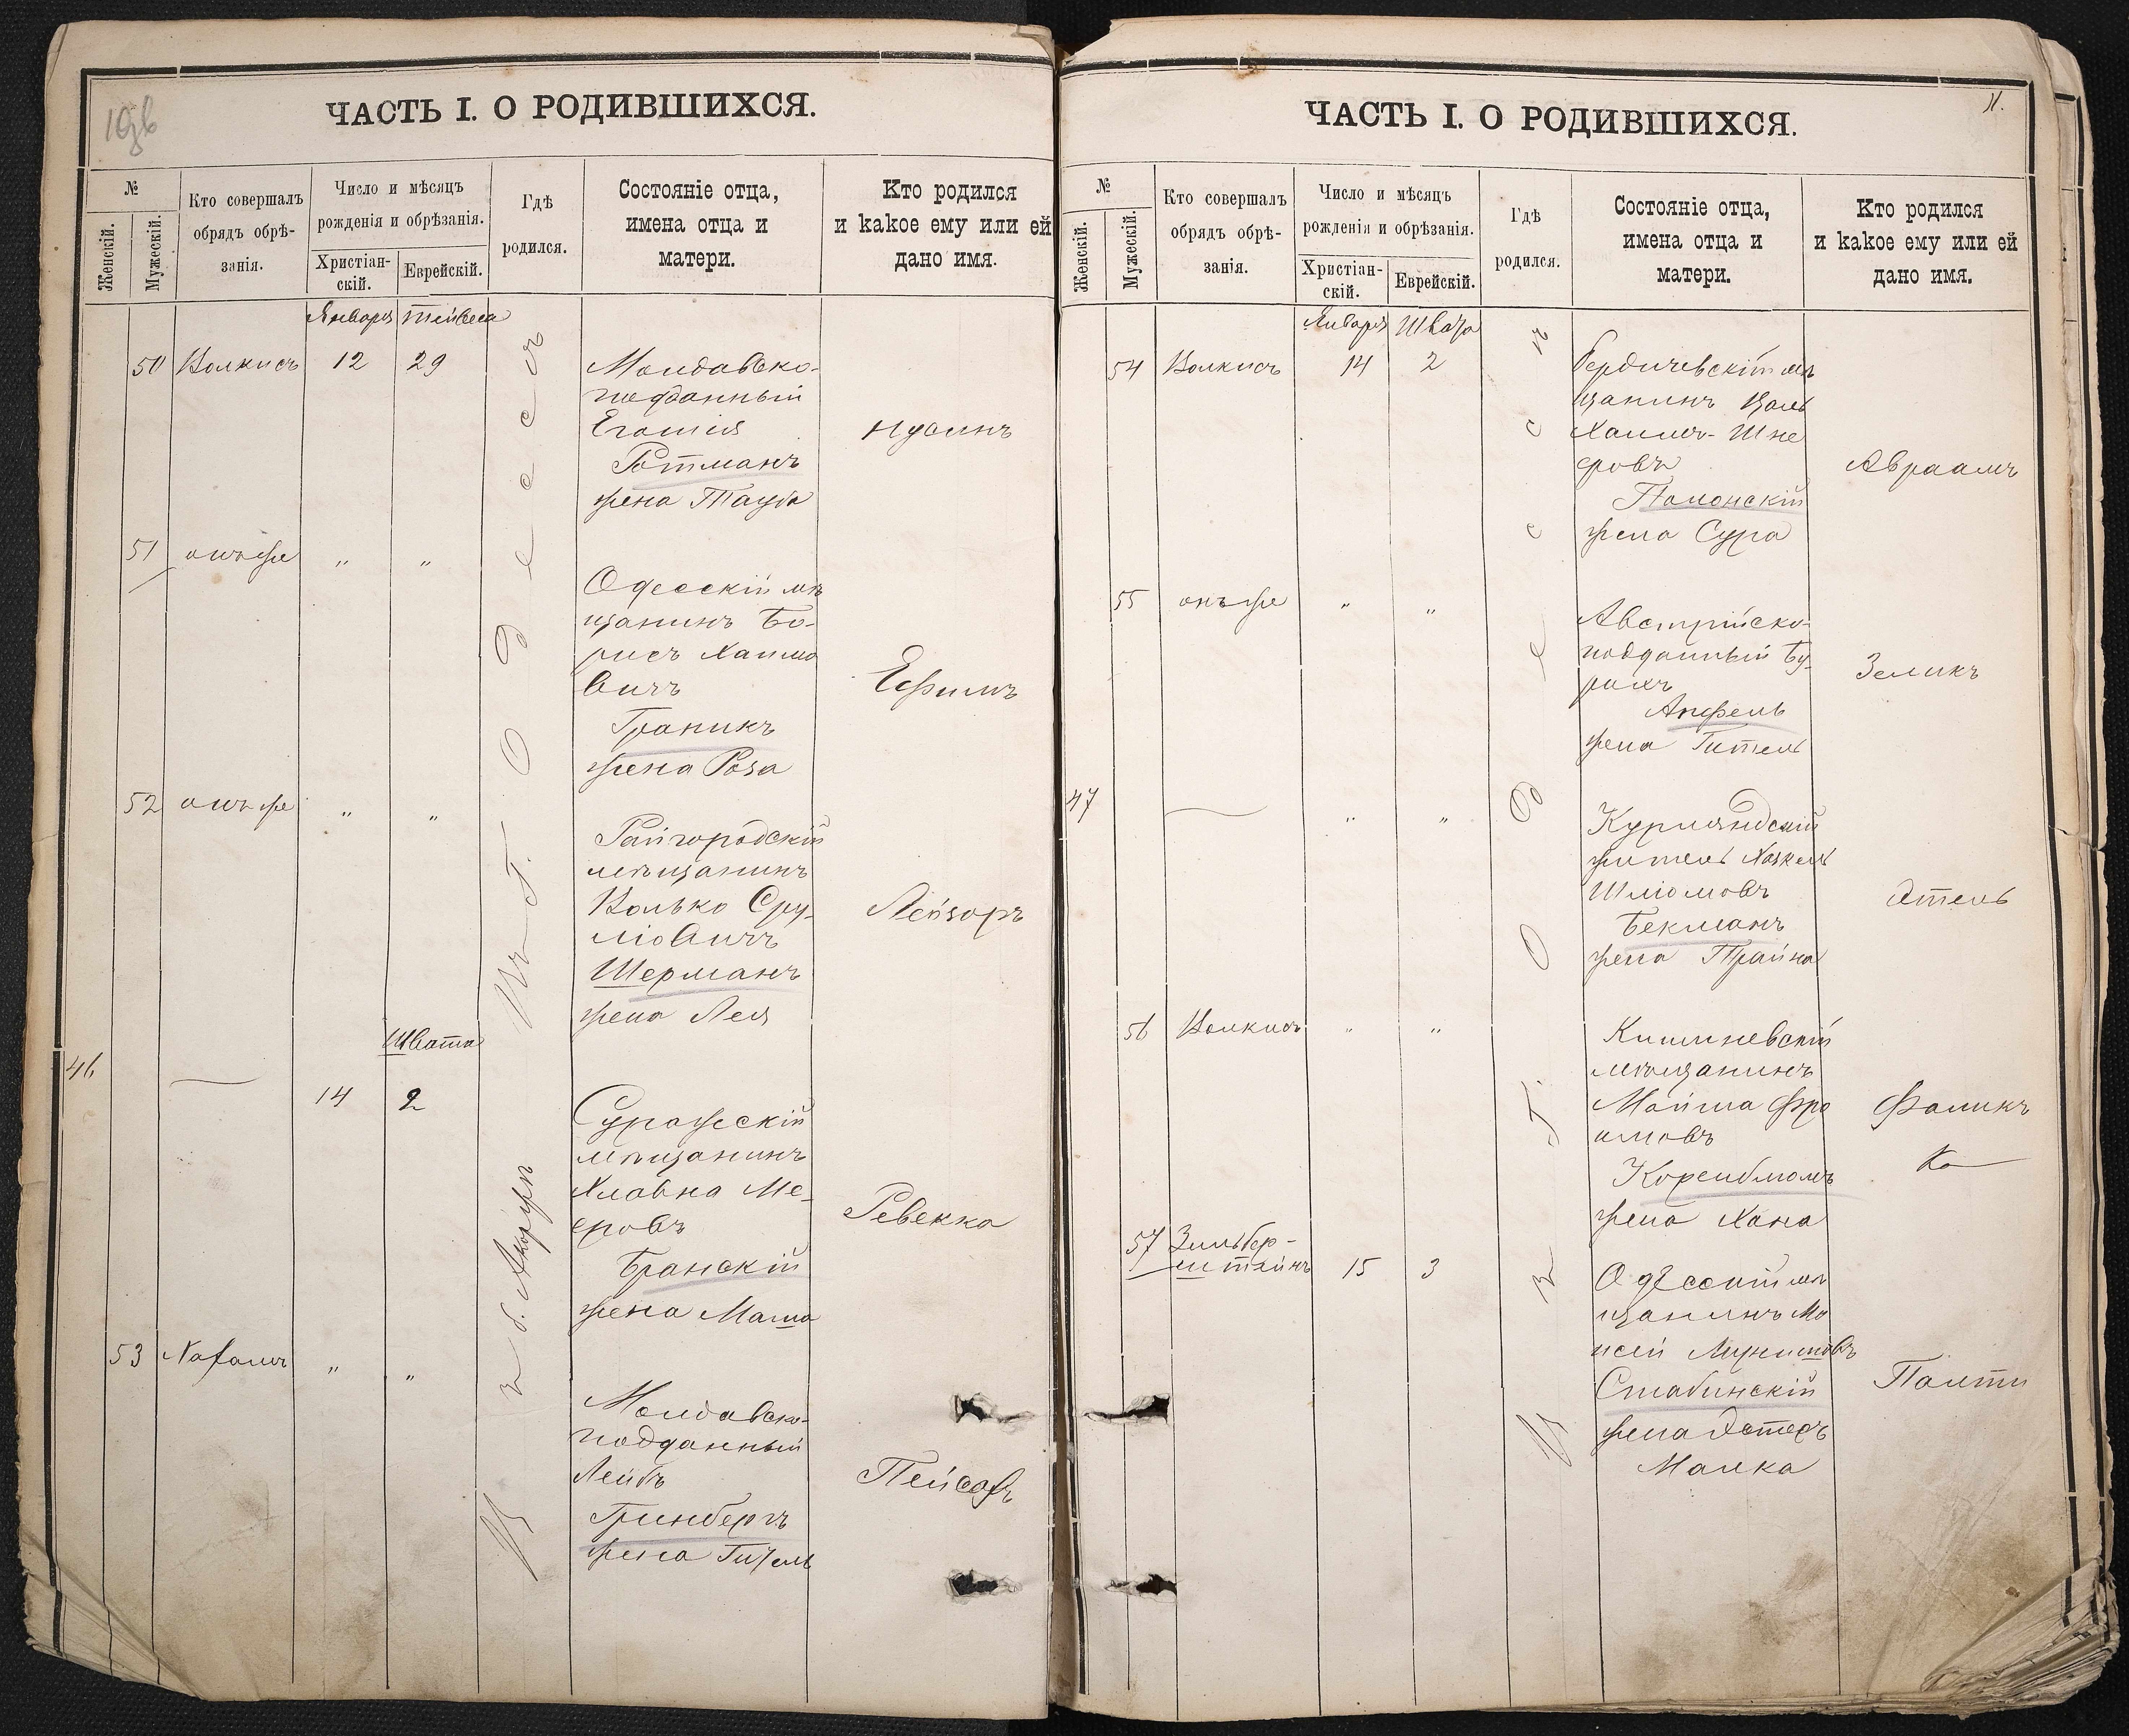 ЧАСТЬ I. О РОДИВШИХСЯ.
№
Женскій.
Мужескій.
Кто совершалъ
обрядъ обрѣ-
занія.
Число и мѣсяцъ
рожденія и обрѣзанія.
Христіан-
скій.
Еврейскій.
Гдѣ
родился.
Состояніе отца,
имена отца и
матери.
Кто родился
и какое ему или ей
дано имя.
Января Тейвеса
50 Волкисъ 12 29
Молдавско-
подданный
Ротманъ
жена Тауба
Нусинъ
51 онъ же " "
Одесскій мѣ
щанинъ Бо-
рисъ Хаимо
вичъ
Граникъ
жена Роза
Ефимъ
52 онъ же " "
Райгородскій
мѣщанинъ
Волько Сру-
ліовичъ
Шерманъ
жена Лея
Лейзоръ
Въ Г. Одессѣ
Швата
46 14 2
Суражскій
мѣщанинъ
Хлавна Ме-
еровъ
Бранскій
жена Маша
Ревекка
53 " "
Молдавско-
подданный
Лейбъ
Гринбергъ
жена
Пейсахъ
ЧАСТЬ I. О РОДИВШИХСЯ.
11.
№
Женскій.
Мужескій.
Кто совершалъ
обрядъ обрѣ-
занія.
Число и мѣсяцъ
рожденія и обрѣзанія.
Христіан-
скій.
Еврейскій.
Гдѣ
родился.
Состояніе отца,
имена отца и
матери.
Кто родился
и какое ему или ей
дано имя.
Января Швата
54 Волкисъ 14 2
Бердичевскій мѣ
щанинъ
Хаимъ-Шне
еровъ
Полонскій
жена Сура
Авраамъ
55 онъ же " "
Австрійско-
подданный Бу-
рихъ
Апфель
жена Гитель
Зеликъ
47 " "
Курляндскій
житель Хацкель
Шліомовъ
Бекманъ
жена Трайна
Этель
56 Волкисъ " "
Кишиневскій
мѣщанинъ
Мойша Фро
имовъ
Коренблюмъ
жена Хана
Фаликъ
57 Зильбер-
штейнъ 15 3
Одесскій мѣ
щанинъ Мо
исей
Стабинскій
жена Эстеръ
Малка
Палти
Въ Г. Одессѣ